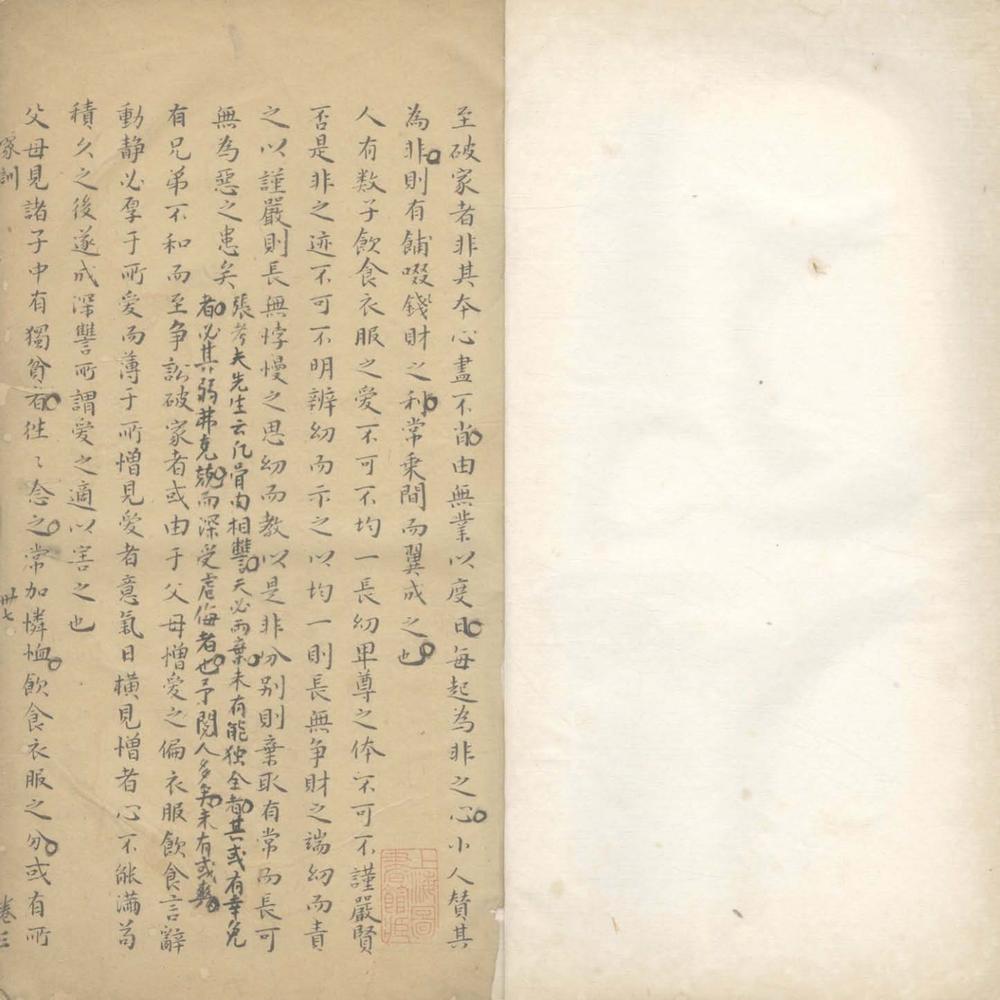 至破家者非其夲心盡不肖由無業以度日每起為非之心小人贊其
為非則有餔啜錢財之利常乗間而翼成之也
人有数子飲食衣服之愛不可不均一長幼卑尊之体不可不謹嚴賢
否是非之迹不可不明辨幼而示之以均一則長無争財之端幼而責
之以謹嚴則長無悖慢之思幼而教以是非分别則棄取有常而長可
無為惡之患矣
張考夫先生云凡骨肉相讐天必両棄未有能独全者其或有幸免
者必其弱弗克兢而深受虐侮者也予閱人多矣未有或爽
有兄弟不和而至争訟破家者或由于父母憎愛之偏衣服飲食言辭
動静必厚于所愛而薄于所憎見愛者意氣日横見憎者心不能满為
積久之後遂成深讐所謂愛之適以害之也
父母見諸子中有獨貧者徃〻念之常加憐恤飲食衣服之分或有所
家訓
卅七
卷三
上海圖書館藏